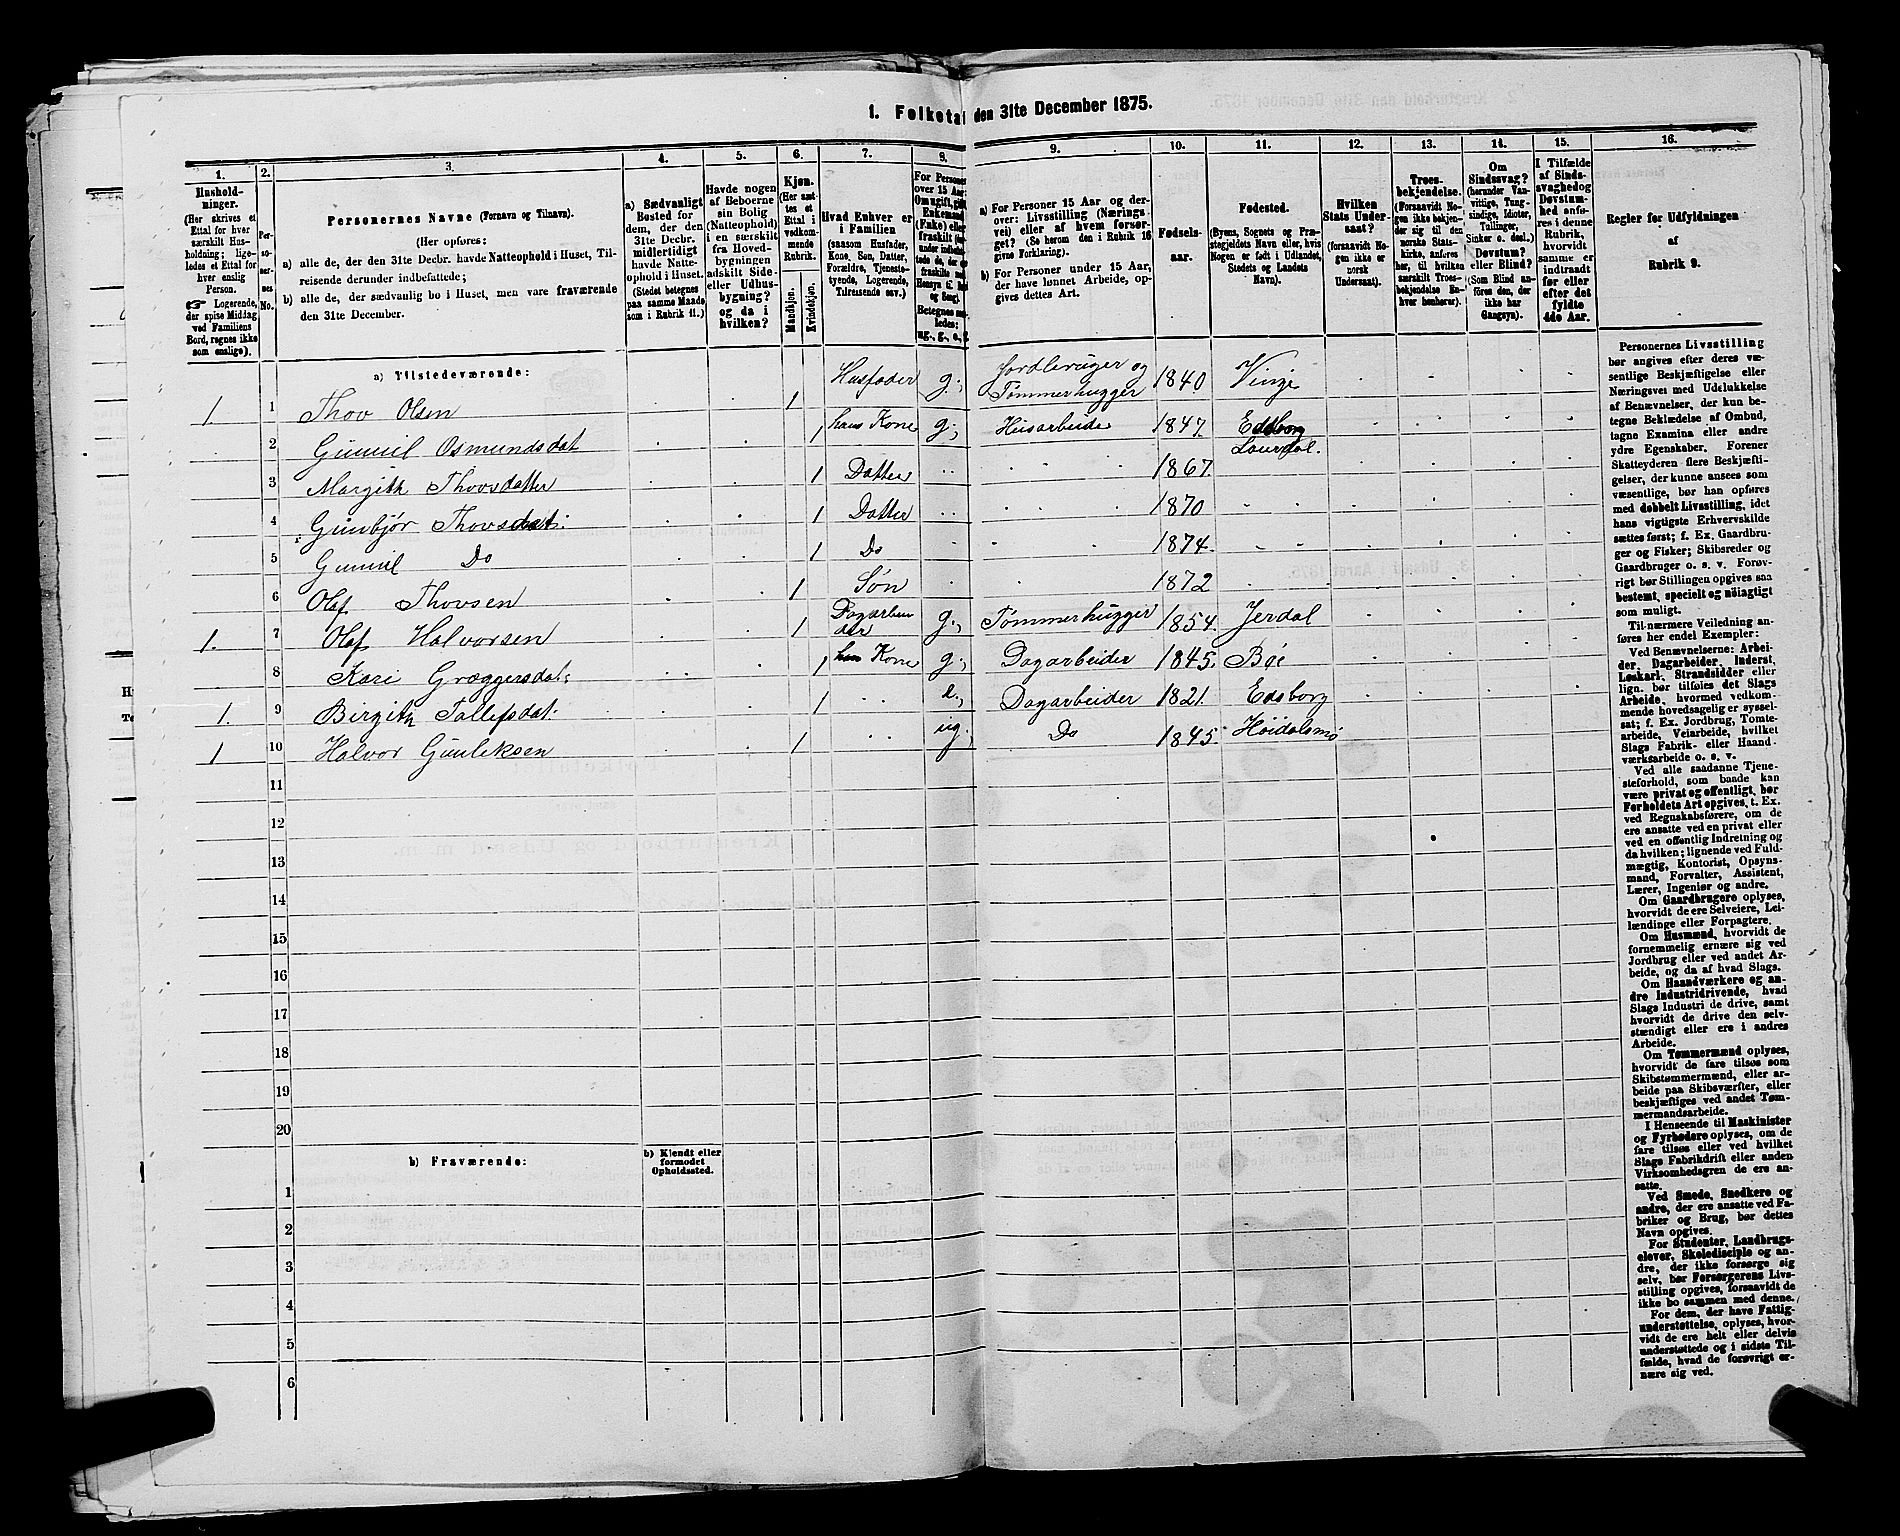 1. Folketal den 31te December 1875.
1. 2. 3. 4. 5. 6. 7. 8. 9. 10. 11. 12. 13. 14. 15. 16.
Hushold-
ninger.
(Her skrives et
Ettal for hver
særskilt Hus-
holdning; lige-
ledes et Ettal for
hver enslig
Person.
☞ Logerende,
der spise Middag
ved Familiens
Bord, regnes ikke
som enslige).
Per-
so-
ner-
nes
No.
Personernes Navne (Fornavn og Tilnavn).
(Her opføres:
a) alle de, der den 31te Decbr. havde Natteophold i Huset, Til-
reisende derunder indbefattede;
b) alle de, der sædvanlig bo i Huset, men vare fraværende
den 31te December.
a) Sædvanligt
Bosted for
dem, der den
31te Decbr.
midlertidigt
havde Natte-
ophold i Huset.
(Stedet betegnes
paa samme Maade
som i Rubrik 11.)
Havde nogen
af Beboerne
sin Bolig
(Natteophold)
i en særskilt
fra Hoved-
bygningen
adskilt Side-
eller Udhus-
bygning?
og da i
hvilken?
Kjøn.
(Her sæt-
tes et
Ettal i
vedkom-
mende
Rubrik.
Mandkjøn.
Kvindekjøn.
Hvad Enhver er
i Familien
(saasom Husfader,
Kone, Søn, Datter,
Forældre, Tjeneste-
tyende, Logerende,
Tilreisende osv.)
For Personer
over 15 Aar:
Omugift, gift,
Enkemand
(Enke) eller
fraskilt
Betegnes saa-
ledes:
ug., g., e., f.
a) For Personer 15 Aar og der-
over: Livsstilling (Nærings-
vei) eller af hvem forsør-
get? (Se herom den i Rubrik 16
givne Forklaring).
b) For Personer under 15 Aar,
der have lønnet Arbeide, op-
gives dettes Art.
Fødsels-
aar.
Fødested.
(Byens, Sognets og Præ-
stegjeldets Navn eller, hvis
Nogen er født i Udlandet,
Stedets og Landets
Navn).
Hvilken
Stats Under-
saat?
(forsaavidt No-
gen ikke er
norsk
Undersaat).
Troes-
bekjendelse.
(Forsaavidt No-
gen ikke bekjen-
der sig til den
norske Stats-
kirke, anføres
her, til hvilken
særskilt Troes-
bekjendelse En-
hver henhører).
Om
Sindssvag?
(herunder Van-
vittige, Tung-
sindige, Idioter,
Tullinger,
Sinker o. desl.)
Døvstum?
eller Blind?
(Som Blind an-
føres den, der
ikke har
Gangsyn).
I Tilfælde
af Sinds-
svaghed og
Døvstum-
hed anfø-
res i denne
Rubrik,
hvorvidt
samme er
indtraadt
før eller
efter det
fyldte
4de Aar.
Regler for Udfyldningen
af
Rubrik 9.
a) Tilstedeværende:
1. 1 Thov Olsen 1 Husfader g. Jordbruger og Tømmerhugger 1840 Vinje
2 Gunnil Osmundsdat 1 hans Kone g. Husarbeide 1847. Edsborg Laurdal.
3 Margith Thovsdatter 1 Datter 1867.
4 Gunbjør Thovsdat: 1 Datter 1870
5 Gunnil Do 1 Do 1874.
6 Olaf Thovsen 1 Søn 1872
1. 7 Olaf Halvorsen 1 g. Tømmerhugger 1854. Jerdal
8 Kari Græggersdat: 1 Kone g. Dagarbeider 1845. Bøe
1. 9 Birgith Tallefsdat: 1 e. Dagarbeider 1821. Edsborg
1 10 Halvor Gunleksen 1 ug. Do 1845. Høidalsmo
11
12
13
14
15
16
17
18
19
20
b) Fraværende:
b) Kjendt eller
formodet
Opholdssted.
1
2
3
4
5
6
Personernes Livsstilling
bør angives efter deres væ-
sentlige Beskjæftigelse eller
Næringsvei med Udelukkelse
af Benævnelser, der kun be-
tegne Beklædelse af Ombud,
tagne Examina eller andre
ydre Egenskaber. Forener
Skatteyderen flere Beskjæfti-
gelser, der kunne ansees som
væsentlige, bør han opføres
med dobbelt Livsstilling, idet
hans vigtigste Erhvervskilde
sættes først; f. Ex. Gaardbru-
ger og Fisker; Skibsreder og
Gaardbruger o. s. v. Forøv-
rigt bør Stillingen opgives saa
bestemt, specielt og nøiagtigt
som muligt.
Til nærmere Veiledning an-
føres her endel Exempler:
Ved Benævnelserne: Arbei-
der, Dagarbeider, Inderst,
Løskarl, Strandsidder eller
lign. bør tilføies det Slags
Arbeide, hvormed vedkom-
mende hovedsagelig er syssel-
sat; f. Ex. Jordbrug, Tomte-
arbeide, Veiarbeide, hvilket
Slags Fabrik- eller Haand-
værksarbeide o. s. v.
Ved alle saadanne Tjene-
steforhold, som baade kan
være privat og offentligt, bør
Forholdets Art opgives, t. Ex.
ved Regnskabsførere, om de
ere ansatte ved en privat eller
ved en offentlig Indretning og
da hvilken; lignende ved Fuld-
mægtig, Kontorist, Opsyns-
mand, Forvalter, Assistent,
Lærer, Ingeniør og andre.
Om Gaardbrugere oplyses,
hvorvidt de ere Selveiere, Lei-
lændinge eller Forpagtere.
Om Husmænd, hvorvidt de
fornemmelig ernære sig ved
Jordbrug eller ved andet Ar-
beide, og da af hvad Slags.
Om Haandværkere og an-
dre Industridrivende, hvad
Slags Industri de drive, samt
hvorvidt de drive den selv-
stændigt eller ere i andres
Arbeide.
Om Tømmermænd oplyses,
hvorvidt de fare tilsøs som
Skibstømmermænd, eller ar-
beide paa Skibsværfter, eller
beskjæftiges ved andet Tøm-
mermandsarbeide.
I Henseende til Maskinister
og Fyrbødere oplyses, om de
fare tilsøs eller ved hvilket
Slags Fabrikdrift eller anden
Virksomhedsgren de ere an-
satte.
Ved Smede, Snedkere og
andre, der ere ansatte ved Fa-
briker og Brug, bør dettes
Navn opgives.
For Studenter, Landbrugs-
elever, Skoledisciple og an-
dre, der ikke forsørge sig
selv, bør Forsørgerens Livs-
stilling opgives, forsaavidt de
ikke bo sammen med denne.
For dem, der have Fattig-
understøttelse, oplyses, hvor-
vidt de ere helt eller delvis
understøttede og i sidste Til-
fælde, hvad de forøvrigt er-
nære sig ved.